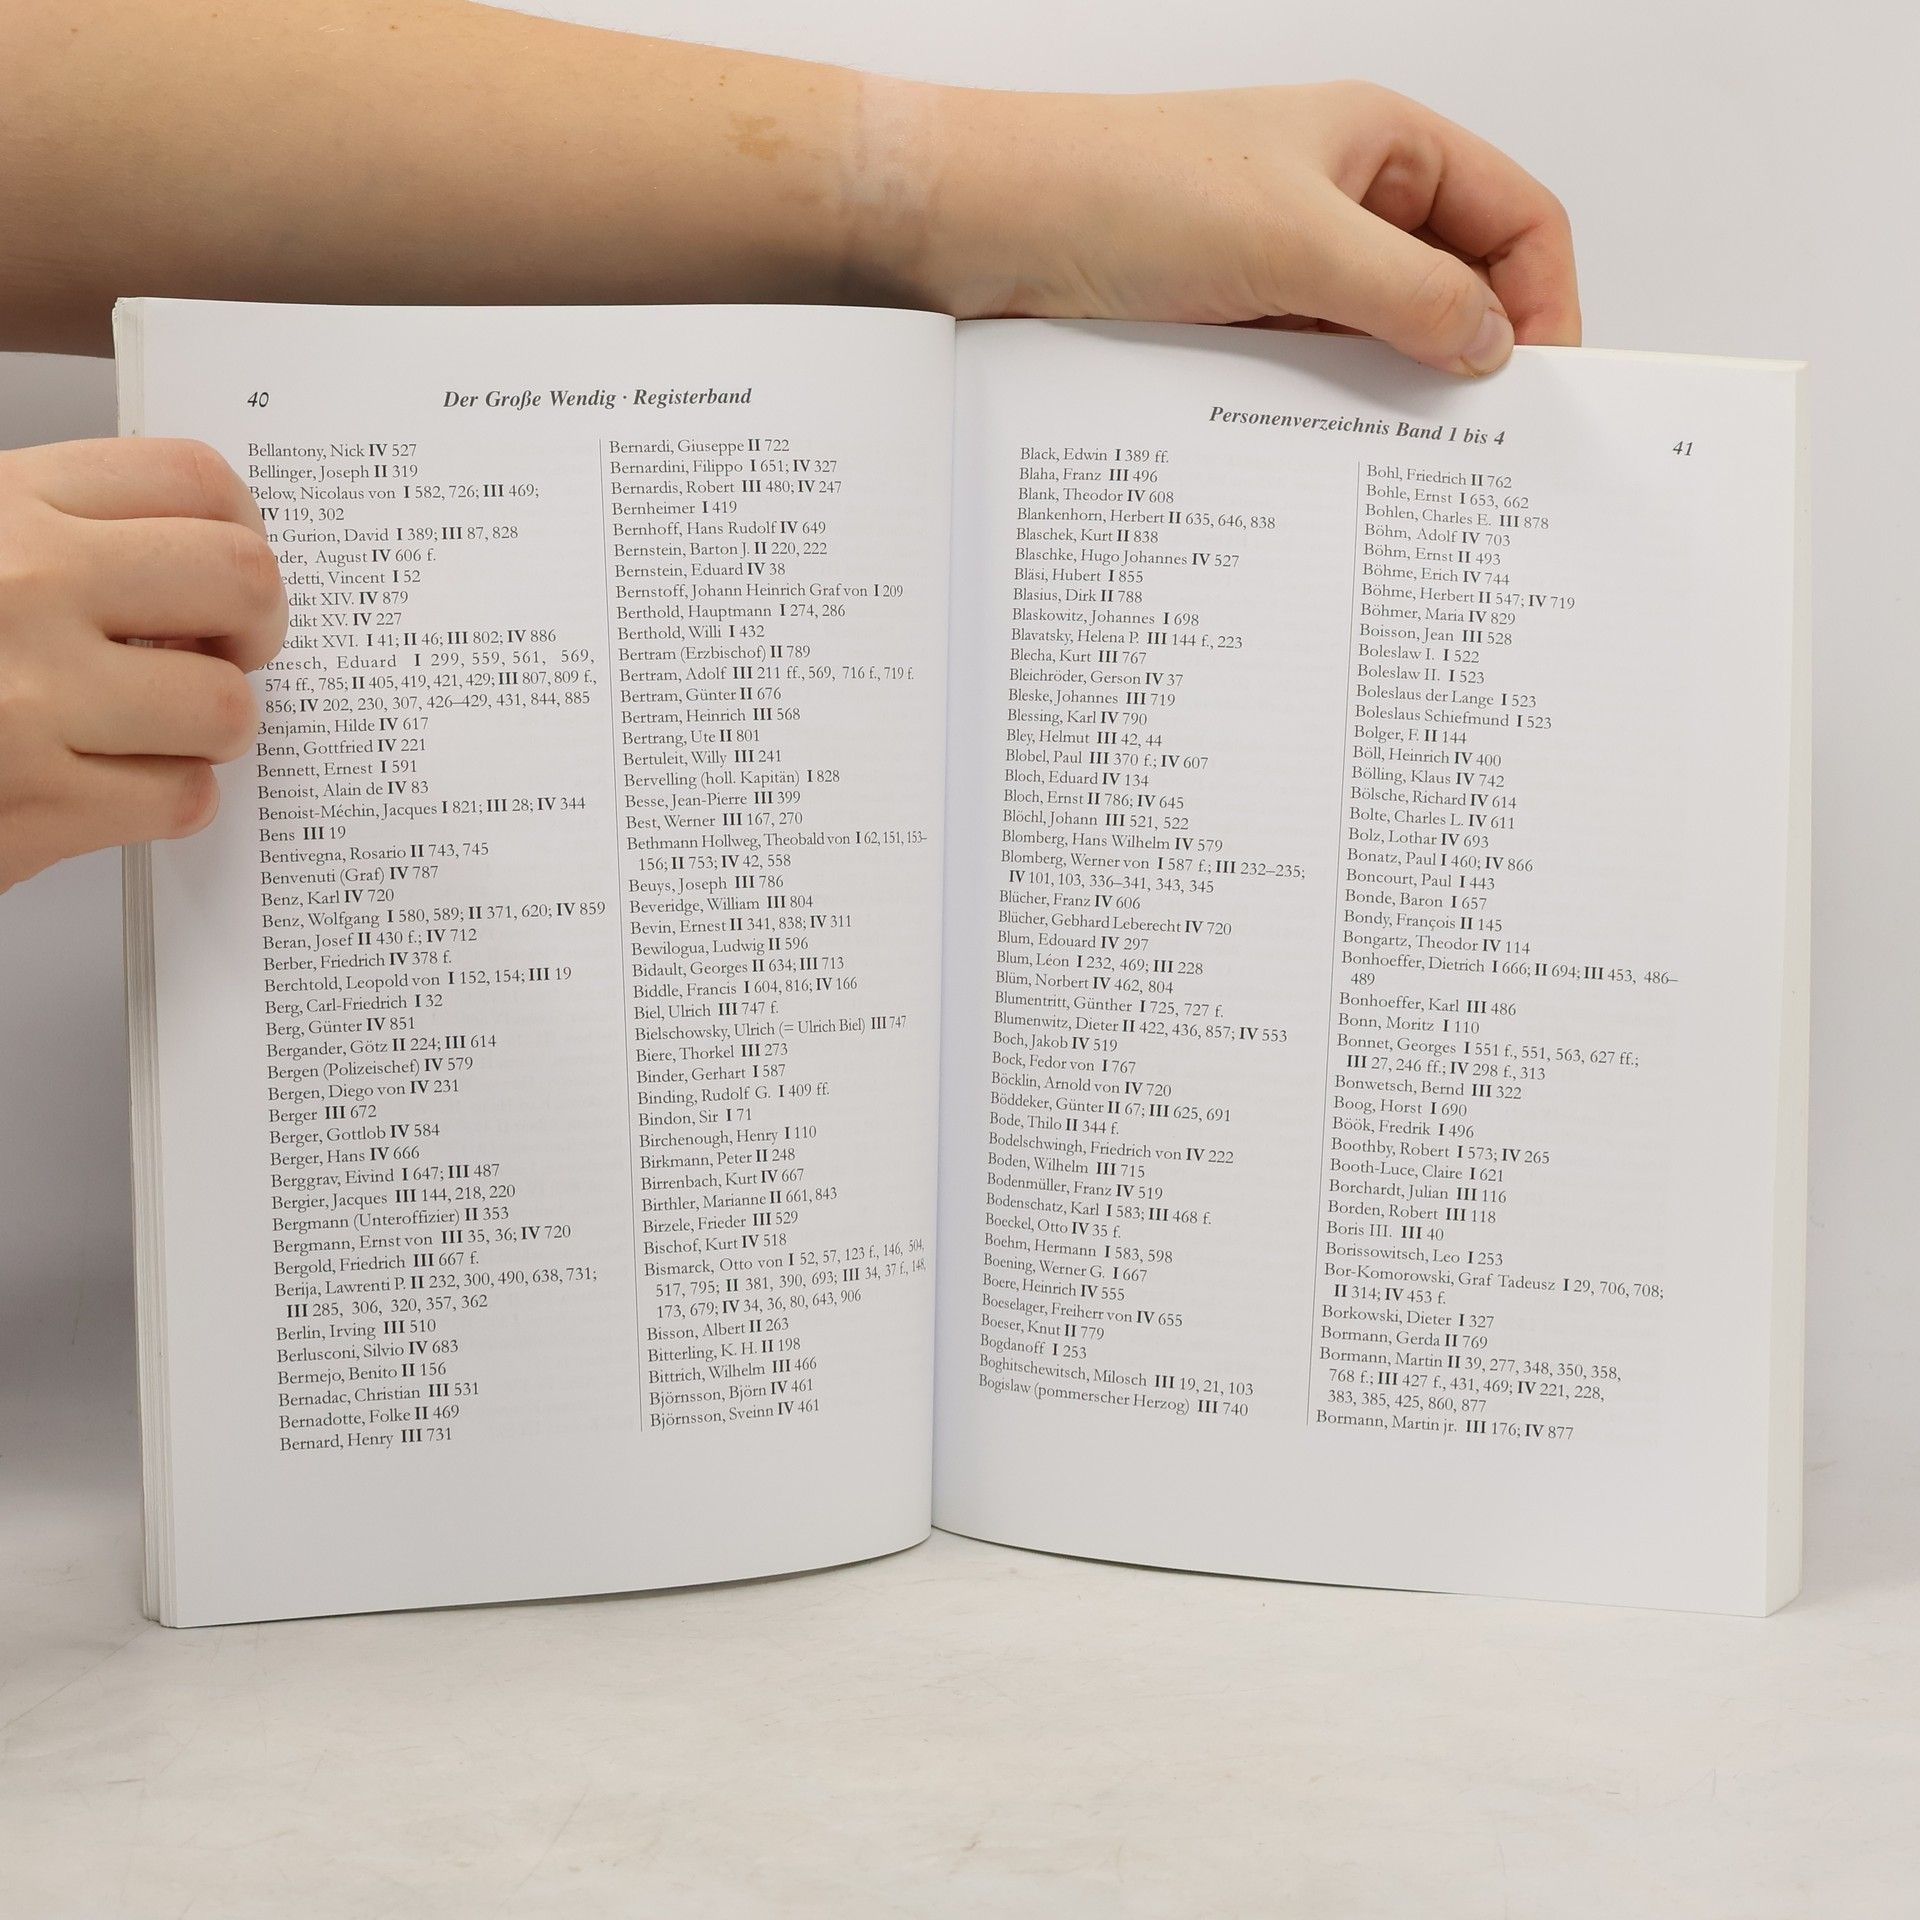 40
Der Große Wendig · Registerband
Bellantony, Nick IV 527
Bellinger, Joseph II 319
Below, Nicolaus von I 582, 726; III 469;
IV 119, 302
en Gurion, David I 389; III 87, 828
nder, August IV 606 f.
edetti, Vincent I 52
dikt XIV. IV 879
dikt XV. IV 227
edikt XVI. I 41; II 46; III 802; IV 886
enesch, Eduard I 299, 559, 561, 569,
574 ff., 785; II 405, 419, 421, 429; III 807, 809 f.,
856; IV 202, 230, 307, 426–429, 431, 844, 885
Benjamin, Hilde IV 617
Benn, Gottfried IV 221
Bennett, Ernest I 591
Benoist, Alain de IV 83
Benoist-Méchin, Jacques I 821; III 28; IV 344
Bens III 19
Bentivegna, Rosario II 743, 745
Benvenuti (Graf) IV 787
Benz, Karl IV 720
Benz, Wolfgang I 580, 589; II 371, 620; IV 859
Beran, Josef II 430 f.; IV 712
Berber, Friedrich IV 378 f.
Berchtold, Leopold von I 152, 154; III 19
Berg, Carl-Friedrich I 32
Berg, Günter IV 851
Bergander, Götz II 224; III 614
Bergen (Polizeischef) IV 579
Bergen, Diego von IV 231
Berger III 672
Berger, Gottlob IV 584
Berger, Hans IV 666
Berggrav, Eivind I 647; III 487
Bergier, Jacques III 144, 218, 220
Bergmann (Unteroffizier) II 353
Bergmann, Ernst von III 35, 36; IV 720
Bergold, Friedrich III 667 f.
Berija, Lawrenti P. II 232, 300, 490, 638, 731;
III 285, 306, 320, 357, 362
Berlin, Irving III 510
Berlusconi, Silvio IV 683
Bermejo, Benito II 156
Bernadac, Christian III 531
Bernadotte, Folke II 469
Bernard, Henry III 731
Bernardi, Giuseppe II 722
Bernardini, Filippo I 651; IV 327
Bernardis, Robert III 480; IV 247
Bernheimer I 419
Bernhoff, Hans Rudolf IV 649
Bernstein, Barton J. II 220, 222
Bernstein, Eduard IV 38
Bernstoff, Johann Heinrich Graf von I 209
Berthold, Hauptmann I 274, 286
Berthold, Willi I 432
Bertram (Erzbischof) II 789
Bertram, Adolf III 211 ff., 569, 716 f., 719 f.
Bertram, Günter II 676
Bertram, Heinrich III 568
Bertrang, Ute II 801
Bertuleit, Willy III 241
Bervelling (holl. Kapitän) I 828
Besse, Jean-Pierre III 399
Best, Werner III 167, 270
Bethmann Hollweg, Theobald von I 62, 151, 153–
156; II 753; IV 42, 558
Beuys, Joseph III 786
Beveridge, William III 804
Bevin, Ernest II 341, 838; IV 311
Bewilogua, Ludwig II 596
Bidault, Georges II 634; III 713
Biddle, Francis I 604, 816; IV 166
Biel, Ulrich III 747 f.
Bielschowsky, Ulrich (= Ulrich Biel) III 747
Biere, Thorkel III 273
Binder, Gerhart I 587
Binding, Rudolf G. I 409 ff.
Bindon, Sir I 71
Birchenough, Henry I 110
Birkmann, Peter II 248
Birrenbach, Kurt IV 667
Birthler, Marianne II 661, 843
Birzele, Frieder III 529
Bischof, Kurt IV 518
Bismarck, Otto von I 52, 57, 123 f., 146, 504,
517, 795; II 381, 390, 693; III 34, 37 f., 148,
173, 679; IV 34, 36, 80, 643, 906
Bisson, Albert II 263
Bitterling, K. H. II 198
Bittrich, Wilhelm III 466
Björnsson, Björn IV 461
Björnsson, Sveinn IV 461
Personenverzeichnis Band 1 bis 4
41
Black, Edwin I 389 ff.
Blaha, Franz III 496
Blank, Theodor IV 608
Blankenhorn, Herbert II 635, 646, 838
Blaschek, Kurt II 838
Blaschke, Hugo Johannes IV 527
Bläsi, Hubert I 855
Blasius, Dirk II 788
Blaskowitz, Johannes I 698
Blavatsky, Helena P. III 144 f., 223
Blecha, Kurt III 767
Bleichröder, Gerson IV 37
Bleske, Johannes III 719
Blessing, Karl IV 790
Bley, Helmut III 42, 44
Blobel, Paul III 370 f.; IV 607
Bloch, Eduard IV 134
Bloch, Ernst II 786; IV 645
Blöchl, Johann III 521, 522
Blomberg, Hans Wilhelm IV 579
Blomberg, Werner von I 587 f.; III 232–235;
IV 101, 103, 336–341, 343, 345
Blücher, Franz IV 606
Blücher, Gebhard Leberecht IV 720
Blum, Edouard IV 297
Blum, Léon I 232, 469; III 228
Blüm, Norbert IV 462, 804
Blumentritt, Günther I 725, 727 f.
Blumenwitz, Dieter II 422, 436, 857; IV 553
Boch, Jakob IV 519
Bock, Fedor von I 767
Böcklin, Arnold von IV 720
Böddeker, Günter II 67; III 625, 691
Bode, Thilo II 344 f.
Bodelschwingh, Friedrich von IV 222
Boden, Wilhelm III 715
Bodenmüller, Franz IV 519
Bodenschatz, Karl I 583; III 468 f.
Boeckel, Otto IV 35 f.
Boehm, Hermann I 583, 598
Boening, Werner G. I 667
Boere, Heinrich IV 555
Boeselager, Freiherr von IV 655
Boeser, Knut II 779
Bogdanoff I 253
Boghitschewitsch, Milosch III 19, 21, 103
Bogislaw (pommerscher Herzog) III 740
Bohl, Friedrich II 762
Bohle, Ernst I 653, 662
Bohlen, Charles E. III 878
Böhm, Adolf IV 703
Böhm, Ernst II 493
Böhme, Erich IV 744
Böhme, Herbert II 547; IV 719
Böhmer, Maria IV 829
Boisson, Jean III 528
Boleslaw I. I 522
Boleslaw II. I 523
Boleslaus der Lange I 523
Boleslaus Schiefmund I 523
Bolger, F. II 144
Böll, Heinrich IV 400
Bölling, Klaus IV 742
Bölsche, Richard IV 614
Bolte, Charles L. IV 611
Bolz, Lothar IV 693
Bonatz, Paul I 460; IV 866
Boncourt, Paul I 443
Bonde, Baron I 657
Bondy, François II 145
Bongartz, Theodor IV 114
Bonhoeffer, Dietrich I 666; II 694; III 453, 486–
489
Bonhoeffer, Karl III 486
Bonn, Moritz I 110
Bonnet, Georges I 551 f., 551, 563, 627 ff.;
III 27, 246 ff.; IV 298 f., 313
Bonwetsch, Bernd III 322
Boog, Horst I 690
Böök, Fredrik I 496
Boothby, Robert I 573; IV 265
Booth-Luce, Claire I 621
Borchardt, Julian III 116
Borden, Robert III 118
Boris III. III 40
Borissowitsch, Leo I 253
Bor-Komorowski, Graf Tadeusz I 29, 706, 708;
II 314; IV 453 f.
Borkowski, Dieter I 327
Bormann, Gerda II 769
Bormann, Martin II 39, 277, 348, 350, 358,
768 f.; III 427 f., 431, 469; IV 221, 228,
383, 385, 425, 860, 877
Bormann, Martin jr. III 176; IV 877